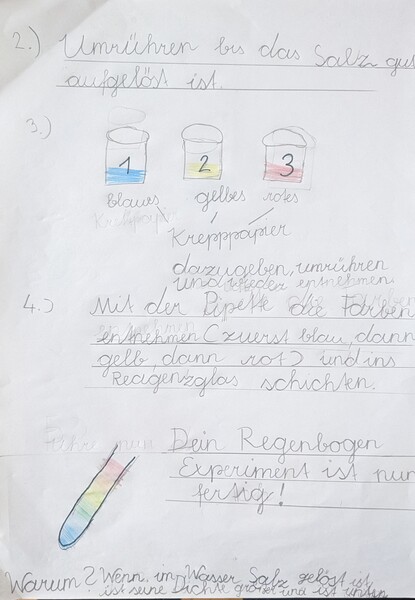 2.) Umrühren bis das Salz gut
aufgelöst ist.
3.)
1 2 3
blaues gelbes rotes
Krepppapier
dazugeben, umrühren
und wieder entnehmen
4.) Mit der Pipette die Farben
entnehmen (zuerst blau, dann
gelb, dann rot) und ins
Reagenzglas schichten.
Dein Regenbogen
Experiment ist nun
fertig!
Warum? Wenn im Wasser Salz gelöst ist
ist seine Dichte größer und ist unten